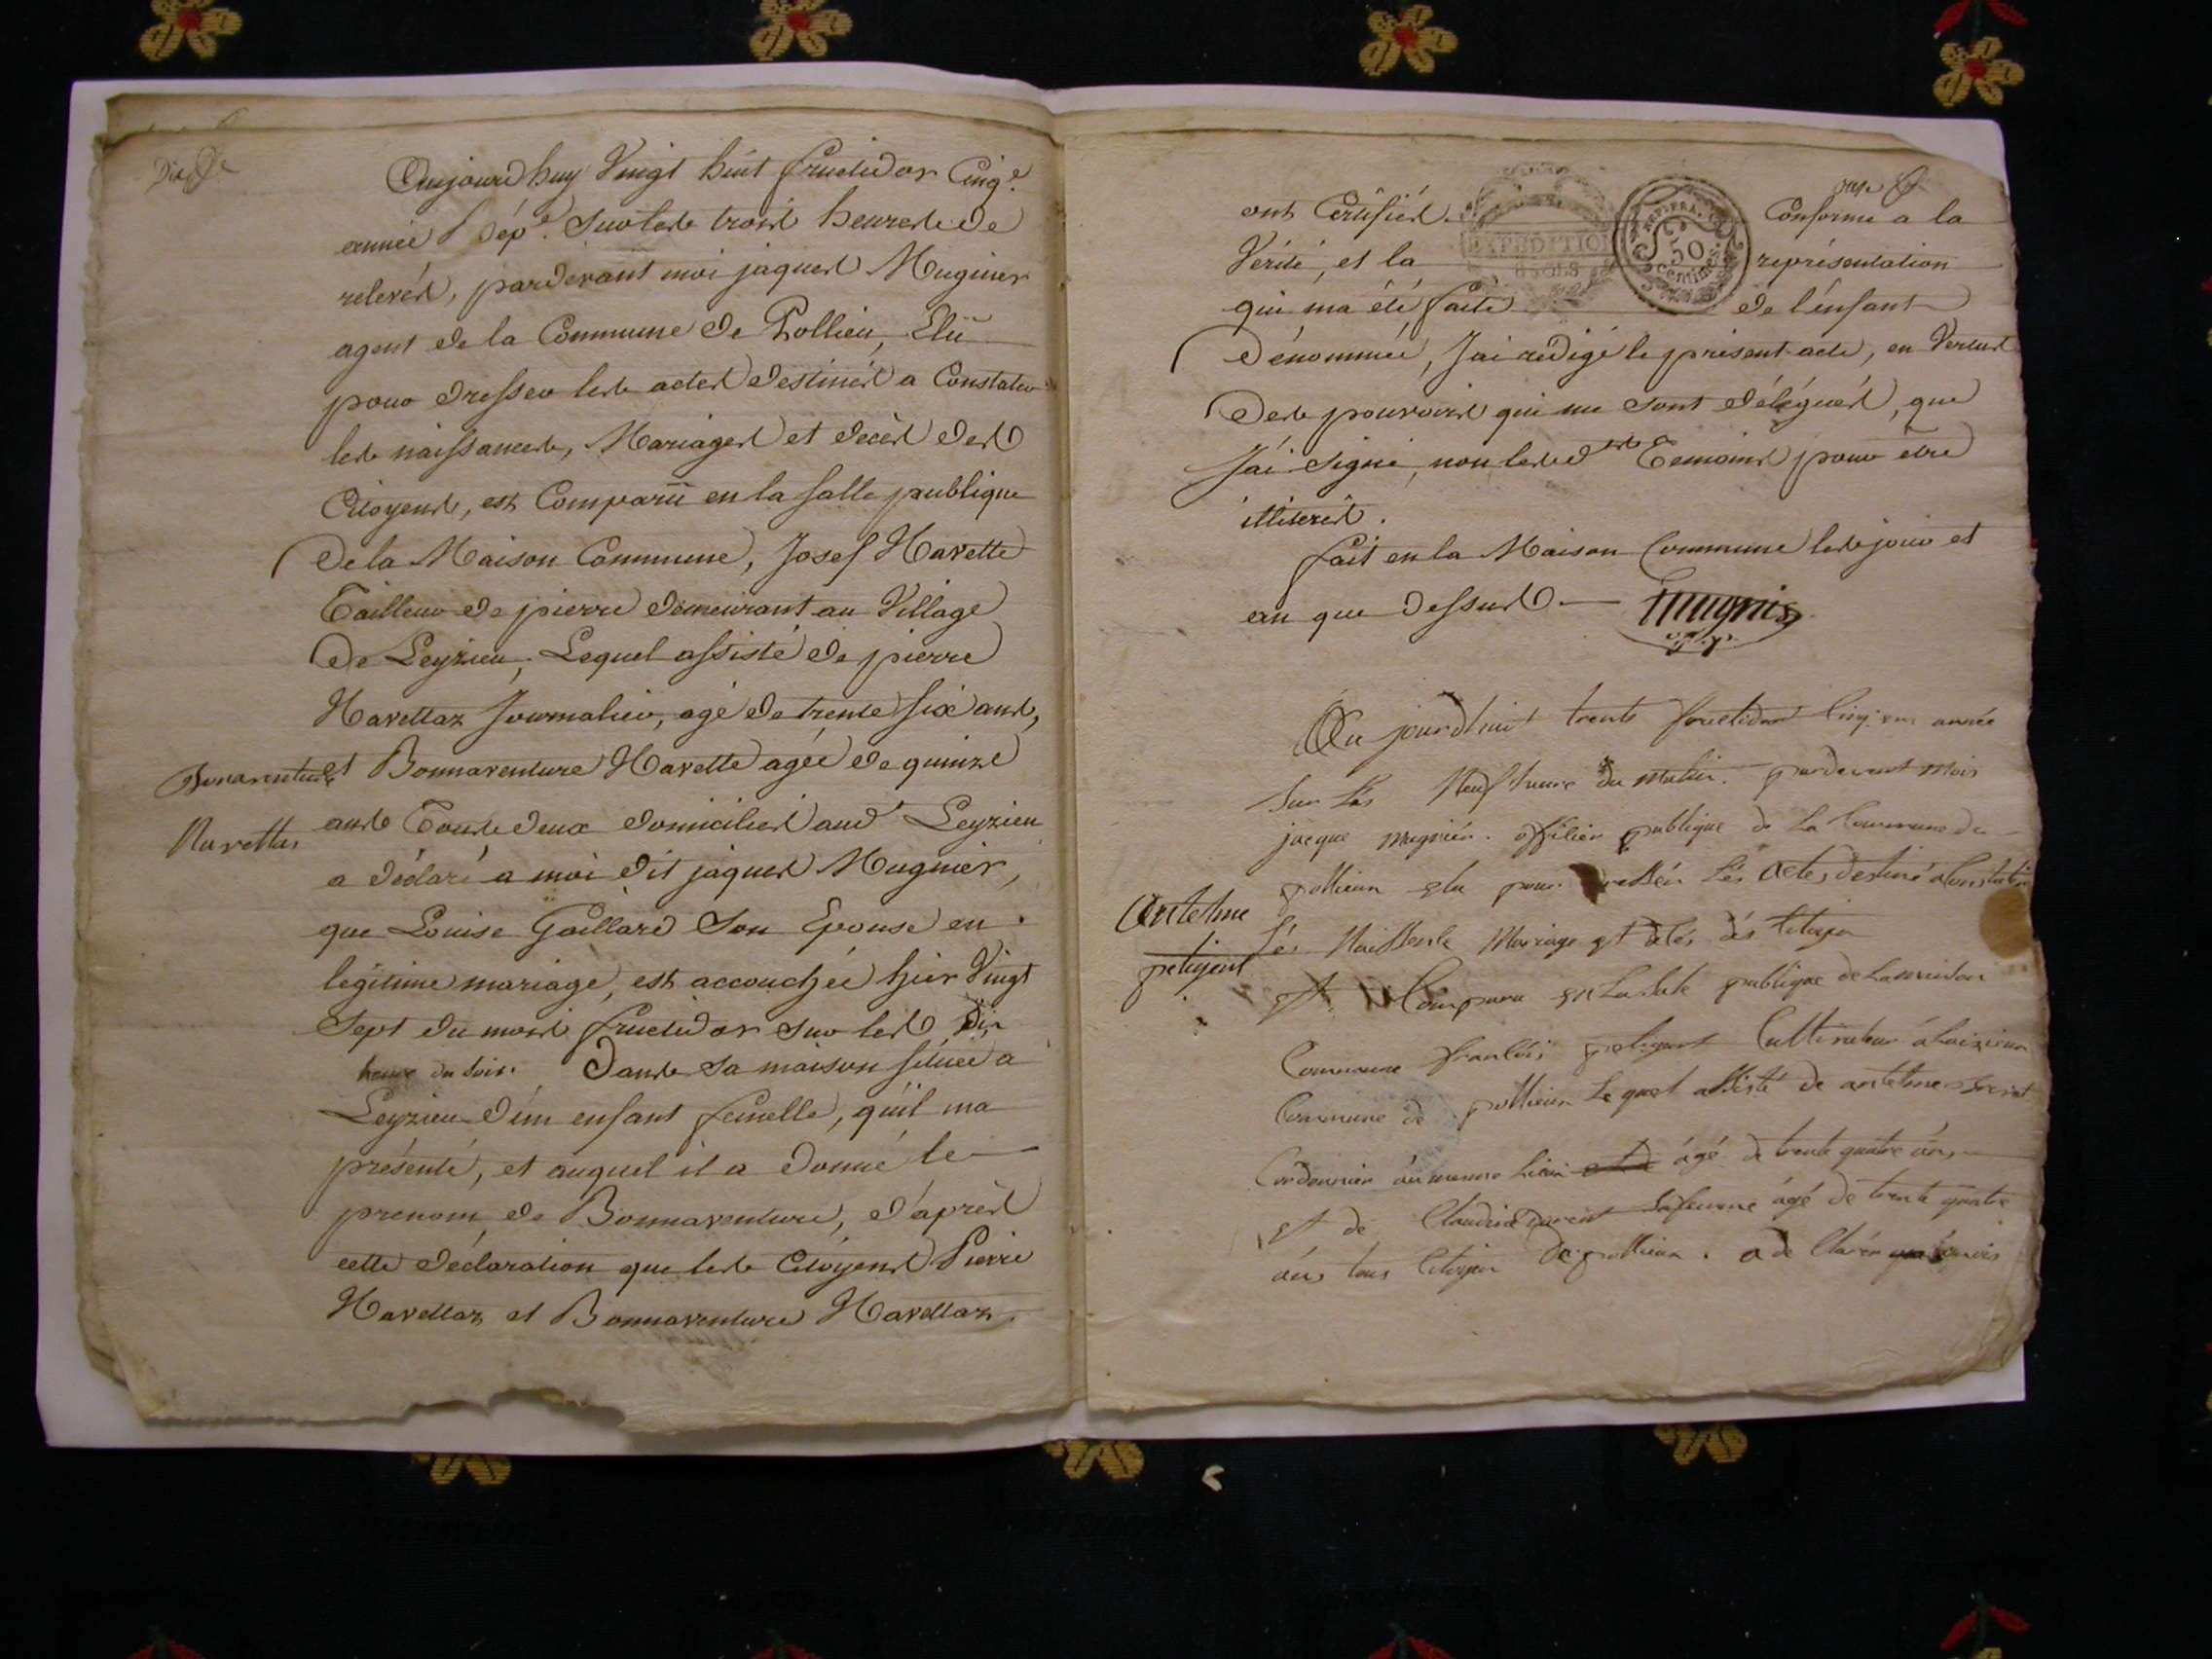 Dix
Aujourd huy Vingt huit fructidor Cinq.e
année Rép.e Sur les trois heures de
relevés, pardevant moi jaques Mugnier
agent de la Commune de Pollieu, Elü
pour dresser les actes destinés a Constater
les naissances, Mariages et décès des
Citoyens, est Comparü en la salle publique
de la Maison Commune, Josef Navette
Tailleur de pierre demeurant au Village
de Leyzieu, Lequel assisté de pierre
Navettaz Journalier, agé de trente six ans,
et Bonnaventure Navette agée de quinze
ans Tous deux domiciliés aud Leyzieu
a déclaré a moi dit jaques Mugnier,
que Louise Gaillard Son Epouse en
legitime mariage, est accouchée hier Vingt
Sept du mois fructidor sur les Dix
heure du Soir. Dans sa maison située a
Leyzieu d'un enfant femelle, qu'il ma
présenté, et auquel il a donné le
prenom de Bonnaventure, d'après
cette déclaration que les Citoyens Pierre
Navettaz et Bonnaventure Navettaz
Bonaventure
Navettas
onze
ont Certifiés Conforme a la
Vérité, et la représentation
qui ma été faite de l'enfant
dénommée, J'ai redigé le présent acte, en Vertus
des pouvoirs qui me sont délégués, que
J'ai signé, non lesd Temoins pour être
illiterés.
fait en la Maison Commune les jour et
an que dessus
EXPEDITION
8 SOLS
50
centimes
Au jourdhui trente fructidor Cinq année
Sur Lés Neuf heure du matin. pardevant mois
jacque mugnier. officier publique de La Commune de
pollieux elu pour dresser Lés actes destiné a Constater
Lés Naissence Mariage et dés Citoyen
et Comparu en La Sale publique de La maison
Commune françois petijent Cultivateur á Laizieux
Commune de pollieux Le quel assisté de antelme
Cordonnier áu meme Lieu ágé de trente quatre áns
et de Claudine sa femme ágé de trente quatre
áns tous Citoyen de pollieux. a de Claré
Antelme
petijent